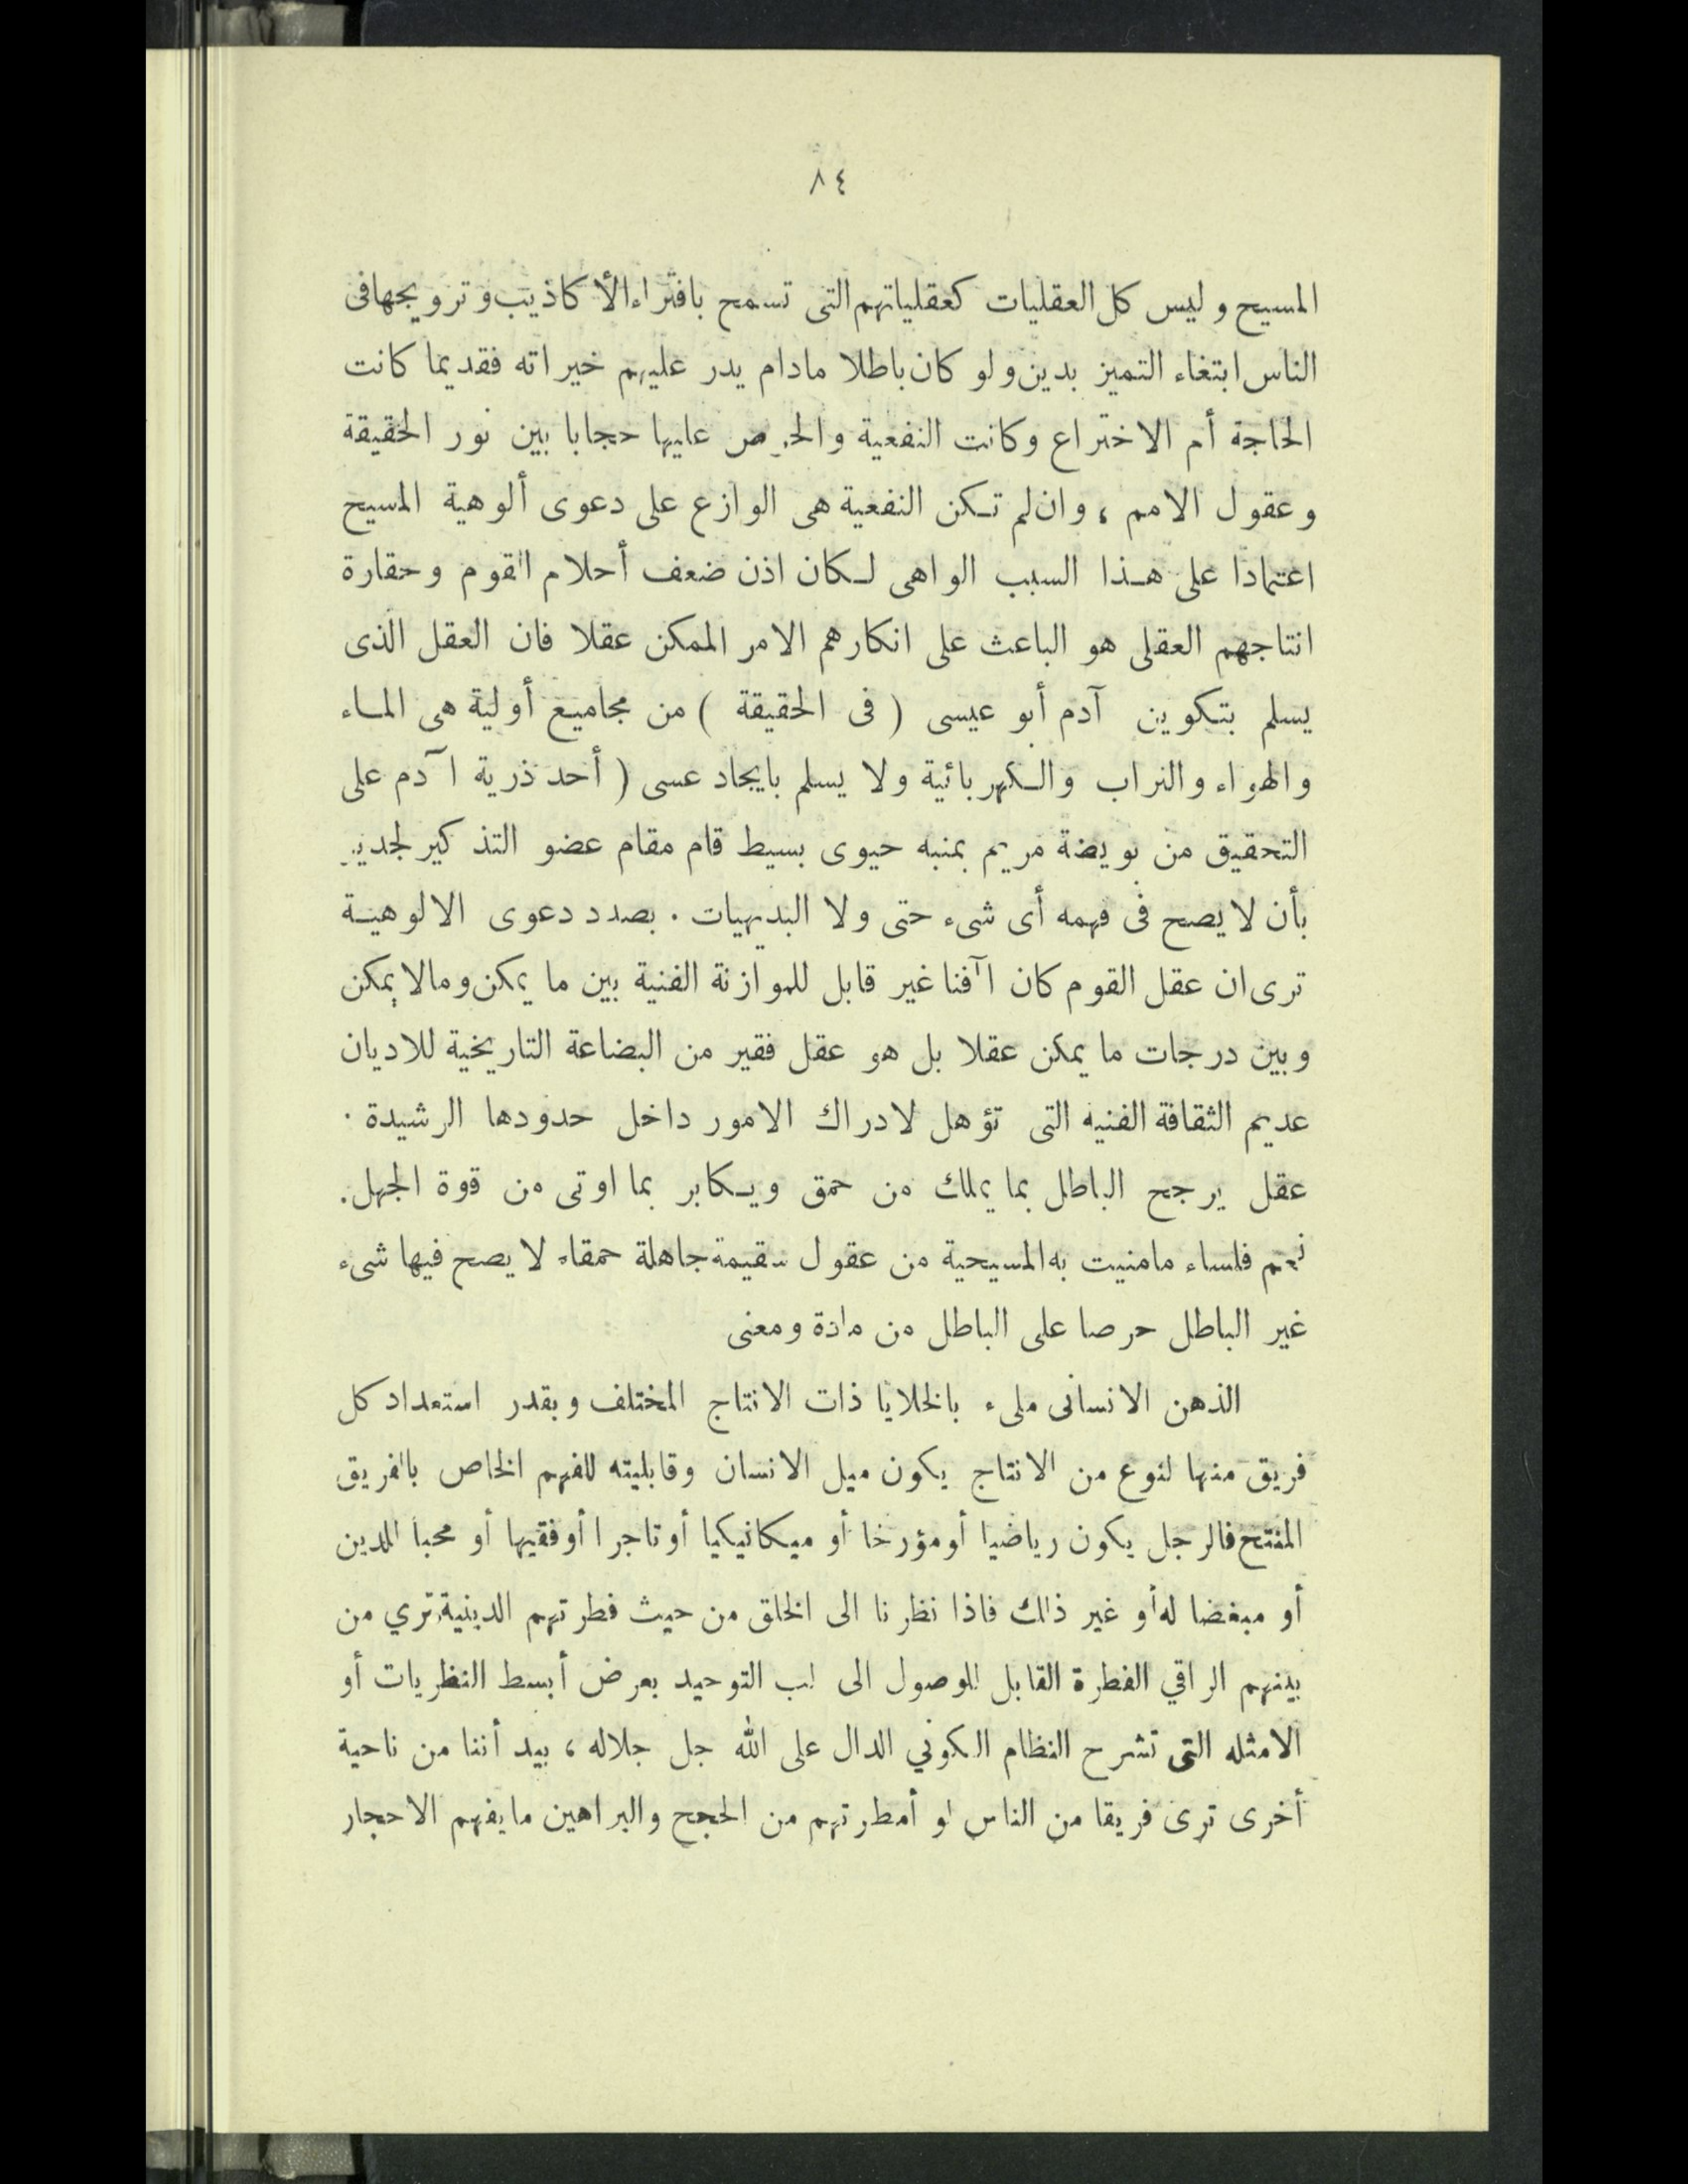 ٨٤
المسيح وليس كل العقليات كعقلياتهم التى تسمح بافتراء الأكاذيب وترويجها فى
الناس ابتغاء التميز بدين ولو كان باطلا مادام يدر عليهم خيراته فقديما كانت
الحاجة أم الاختراع وكانت النفعية والحرص عليها حجابا بين نور الحقيقة
وعقول الامم ، وان لم تكن النفعية هى الوازع على دعوى ألوهية المسيح
اعتمادا على هذا السبب الواهى لكان اذن ضعف أحلام القوم وحقارة
انتاجهم العقلى هو الباعث على انكارهم الامر الممكن عقلا فان العقل الذى
يسلم بتكوين آدم أبو عيسى ( فى الحقيقة ) من مجاميع أولية هى الماء
والهواء والتراب والكهربائية ولا يسلم بايجاد عسى ( أحد ذرية آدم على
التحقيق من بويضة مريم بمنبه حيوى بسيط قام مقام عضو التذكير لجدير
بأن لا يصح فى فهمه أى شىء حتى ولا البديهيات . بصدد دعوى الالوهية
ترى ان عقل القوم كان آفنا غير قابل للموازنة الفنية بين ما يمكن ومالا يمكن
وبين درجات ما يمكن عقلا بل هو عقل فقير من البضاعة التاريخية للاديان
عديم الثقافة الفنيه التى تؤهل لادراك الامور داخل حدودها الرشيدة .
عقل يرجح الباطل بما يملك من حمق ويكابر بما اوتى من قوة الجهل .
نعم فلساء مامنيت به المسيحية من عقول سقيمة جاهلة حمقاء لا يصح فيها شىء
غير الباطل حرصا على الباطل من مادة ومعنى
الذهن الانسانى ملىء بالخلايا ذات الانتاج المختلف وبقدر استعداد كل
فريق منها لنوع من الانتاج يكون ميل الانسان وقابليته للفهم الخاص بالفريق
المنتج فالرجل يكون رياضيا أو مؤرخا أو ميكانيكيا أو تاجرا أو فقيها أو محبا للدين
أو مبغضا له أو غير ذلك فاذا نظرنا الى الخلق من حيث فطرتهم الدينية ، تري من
بينهم الراقي الفطرة القابل للوصول الى لب التوحيد بعرض أبسط النظريات أو
الامثله التى تشرح النظام الكوني الدال على الله جل جلاله ، بيد أننا من ناحية
أخرى ترى فريقا من الناس لو أمطرتهم من الحجج والبراهين ما يفهم الاحجار